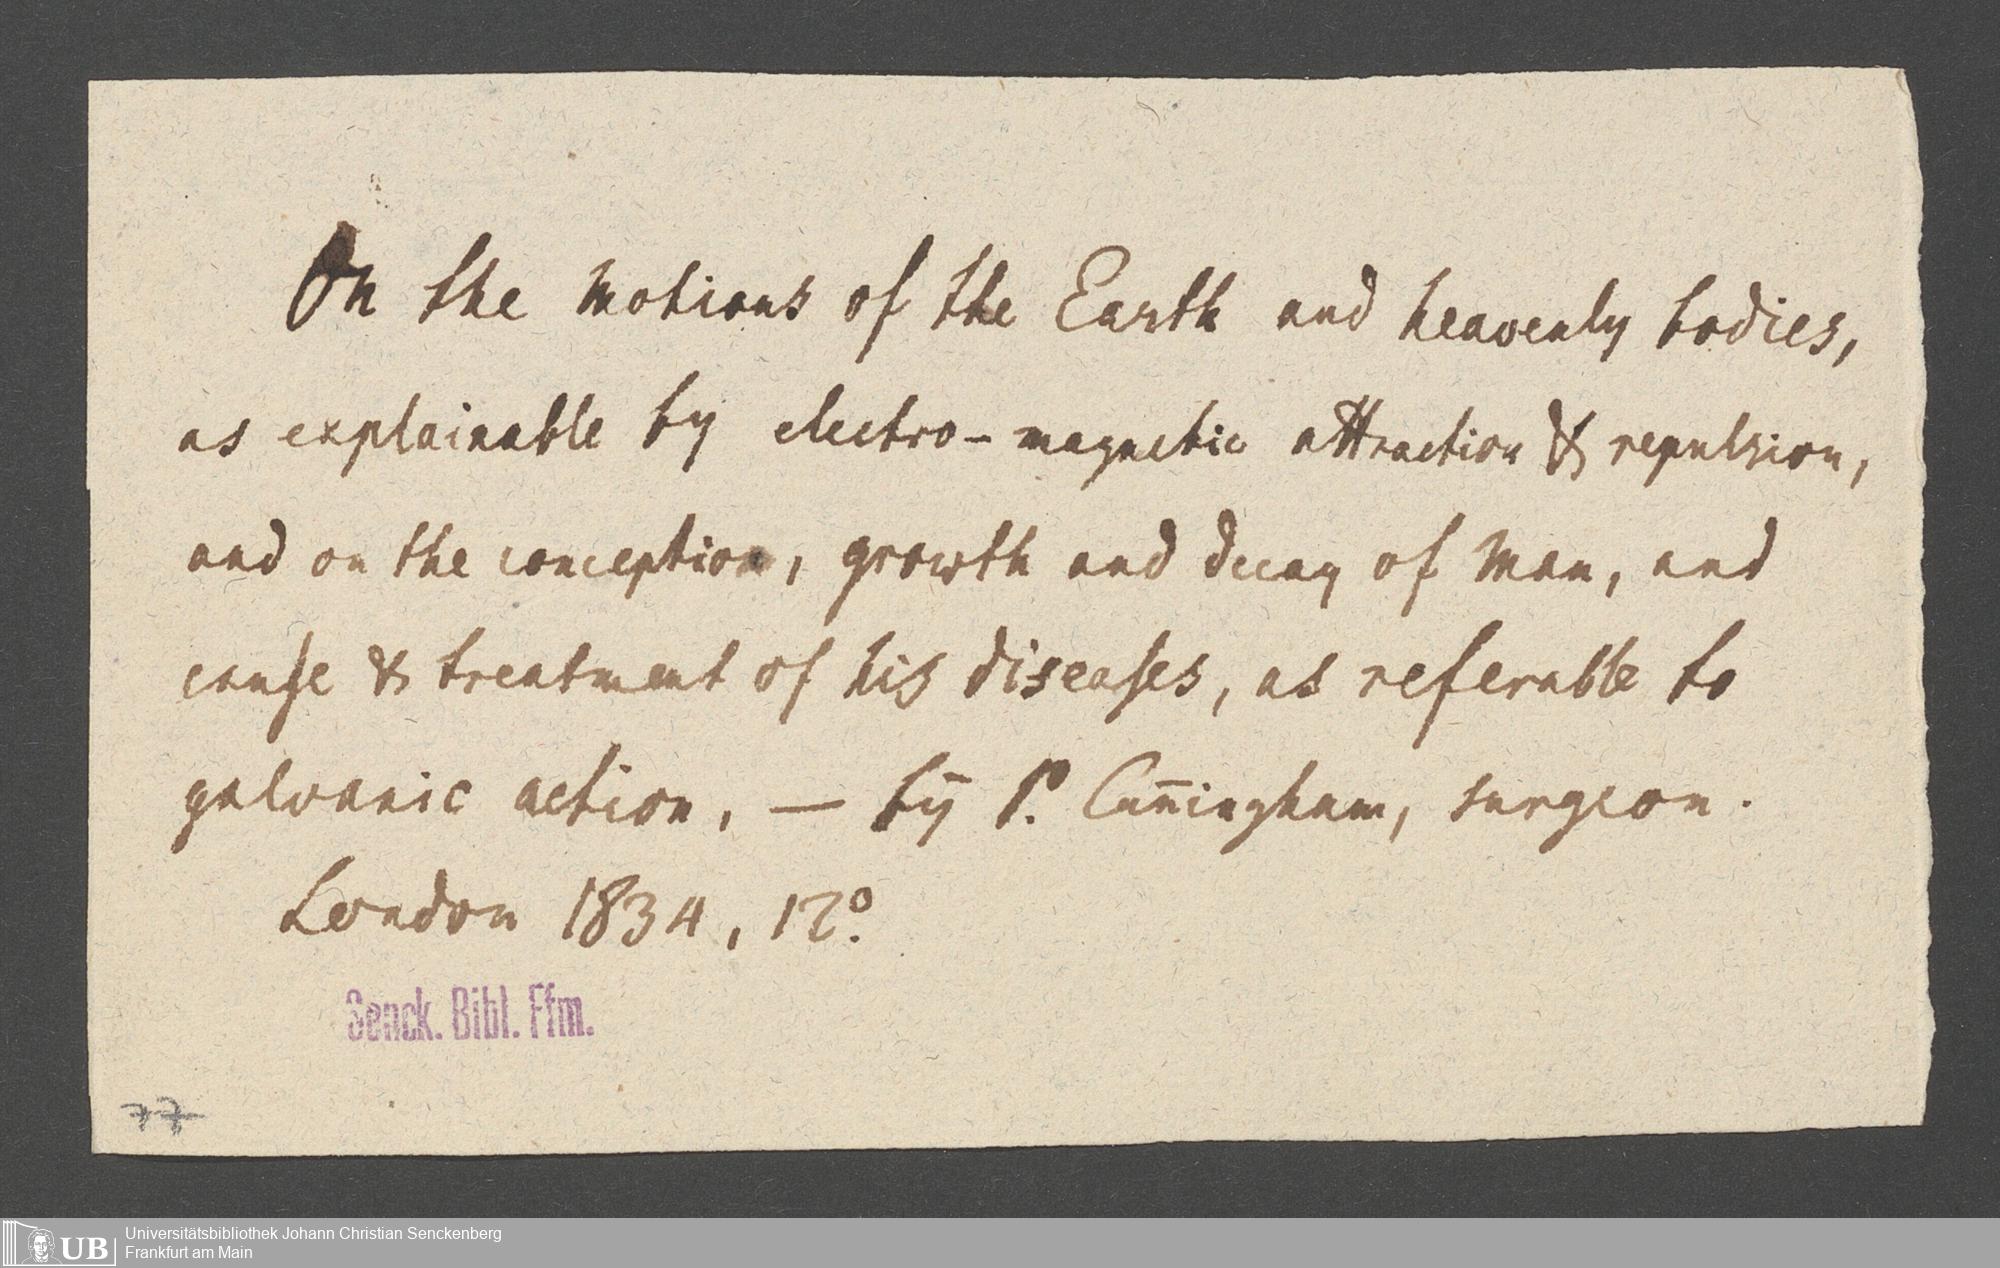 On the Motions of the Earth and heavenly bodies,
as explainable by electro-magnetic attraction & repulsion,
and on the conception, growth and decay of Man, and
cauſe & treatment of his diseaſes, as referable to
galvanic action, — by P. Cun̅ingham, surgeon.
London 1834, 12º.
Senck. Bibl. Ffm.
77
UB Universitätsbibliothek Johann Christian Senckenberg
Frankfurt am Main